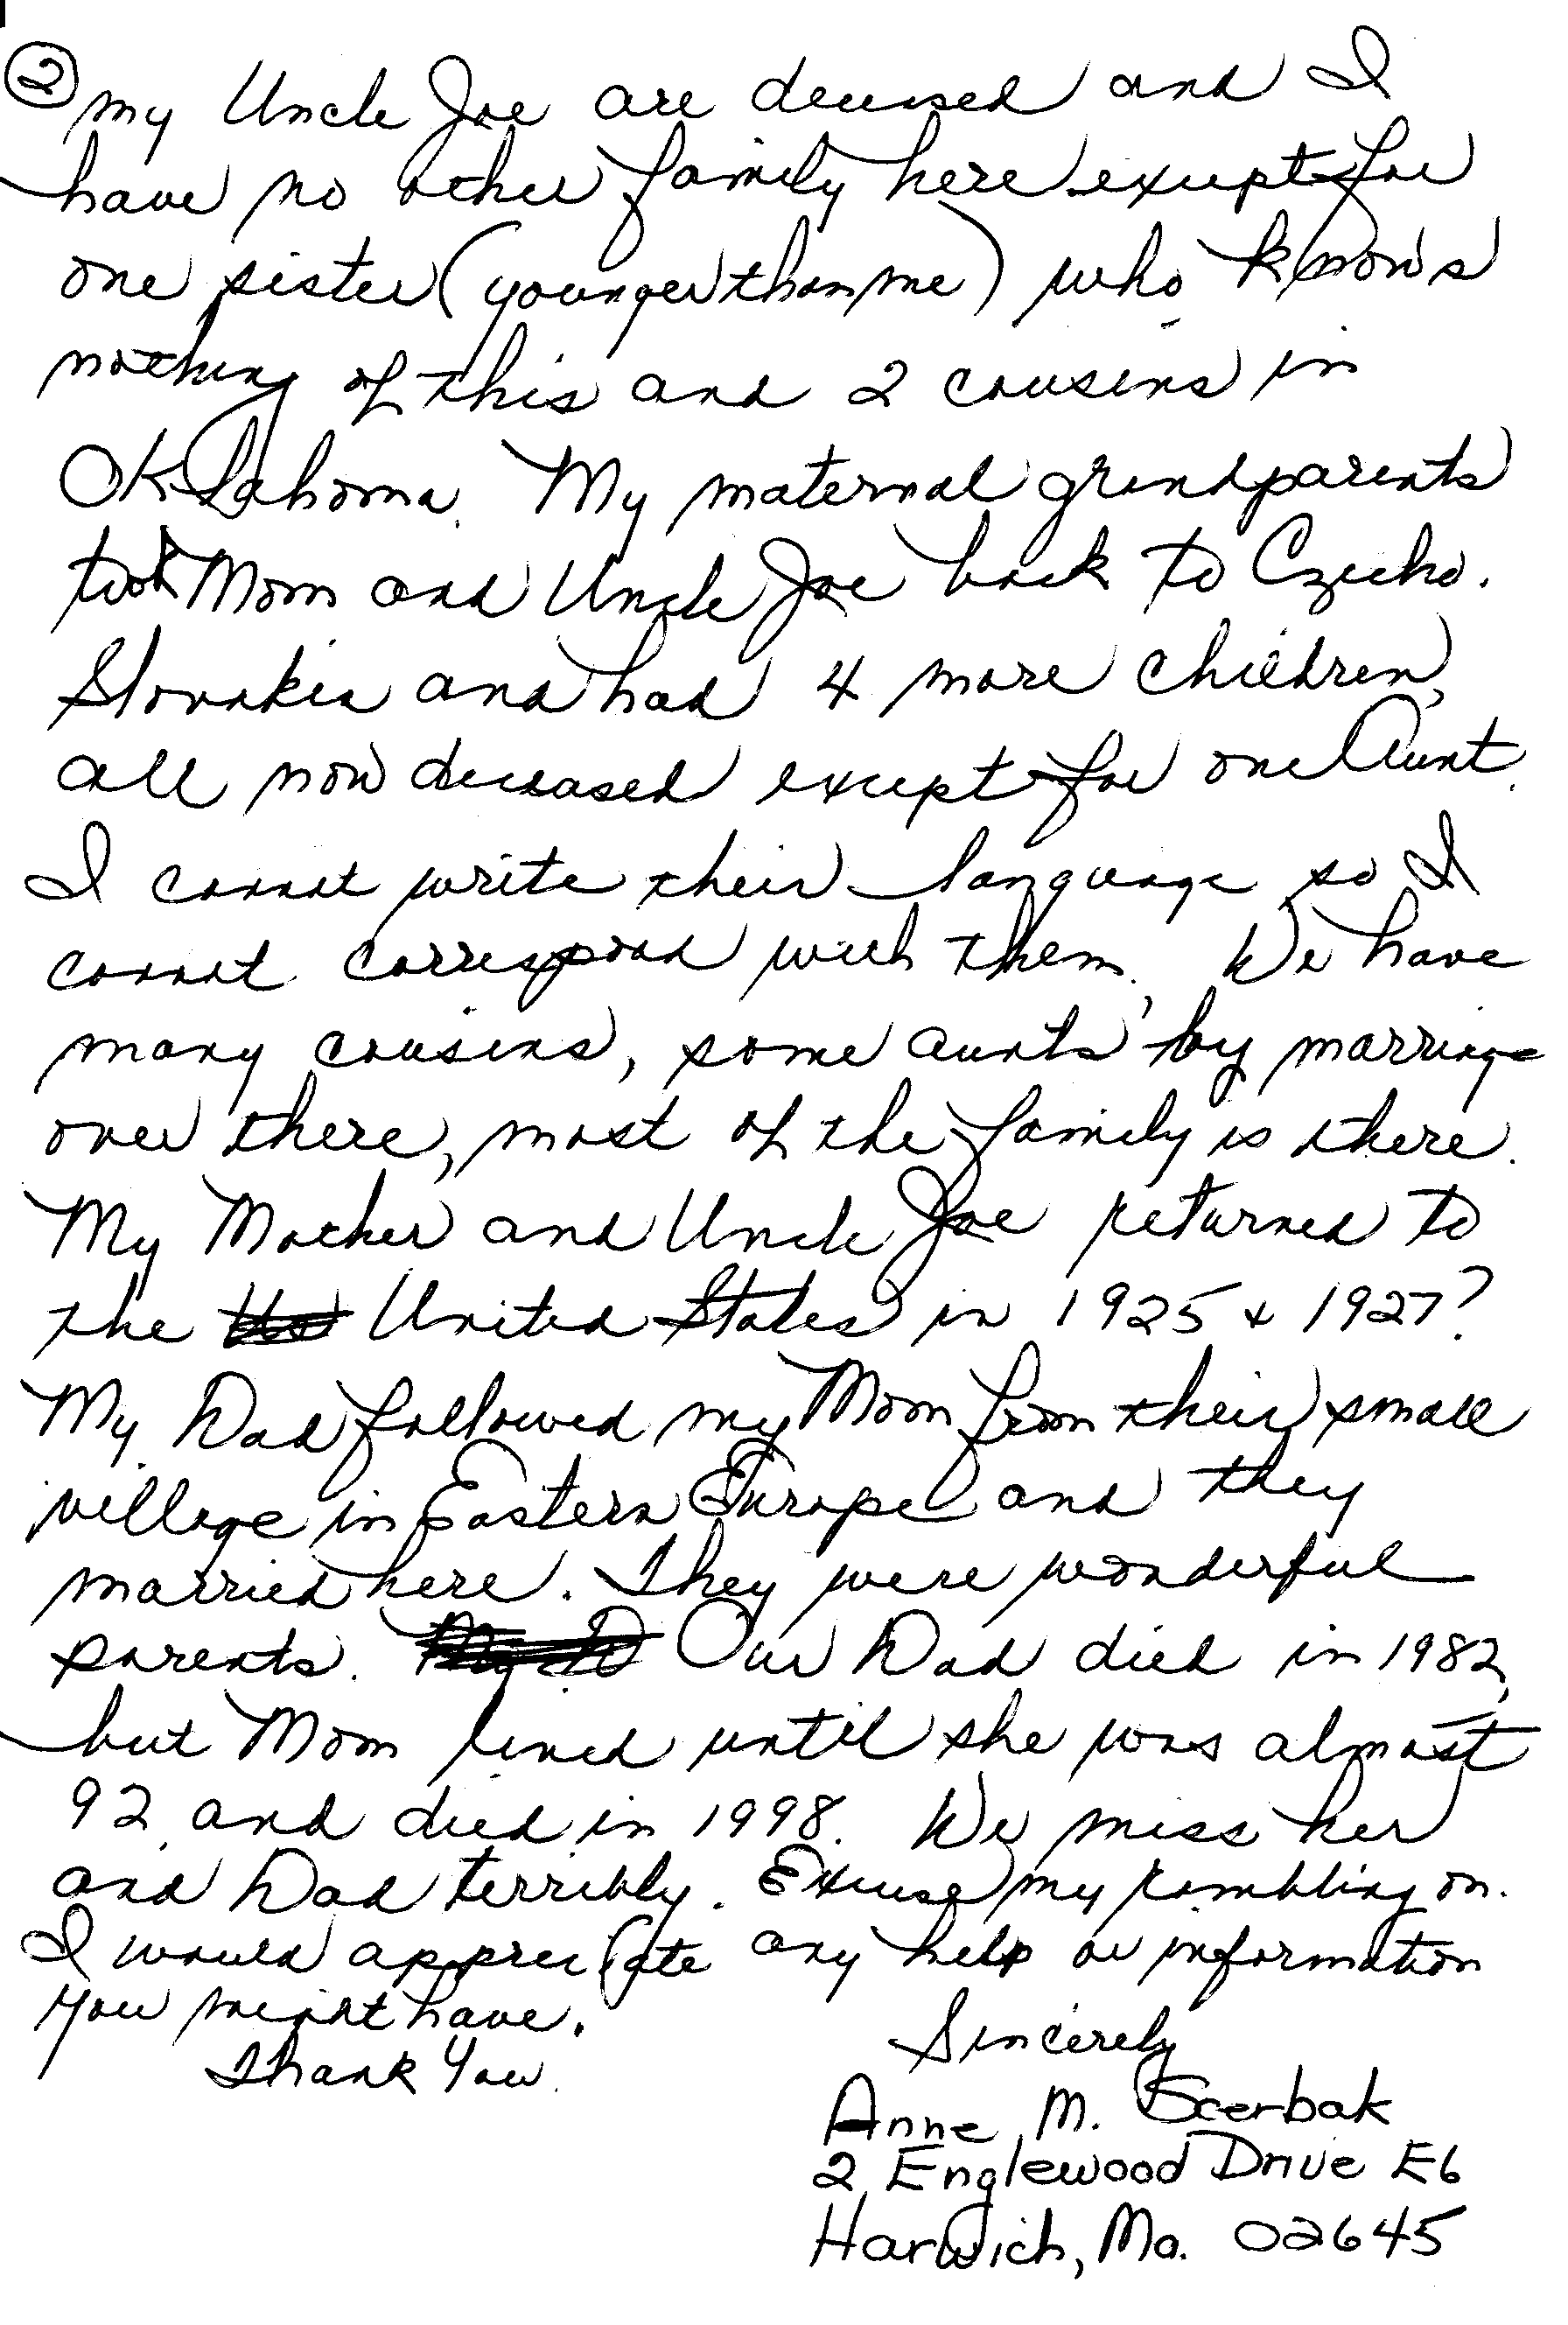 ② my Uncle Joe are deceased and I
have no other family here except for
one sister (younger than me) who knows
nothing of this and 2 cousins in
Oklahoma. My maternal grandparents
took Mom and Uncle Joe back to Czecho.
Slovakia and had 4 more children,
all now deceased except for one Aunt.
I cannot write their language so I
cannot correspond with them. We have
many cousins, some aunts by marriage
over there, most of the family is there.
My Mother and Uncle Joe returned to
the United States in 1925 & 1927?
My Dad followed my Mom from their small
village in Eastern Europe and they
married here. They were wonderful
parents. Our Dad died in 1982,
but Mom lived until she was almost
92 and died in 1998. We miss her
and Dad terribly. Excuse my rambling on.
I would appreciate any help or information
you might have.
Sincerely
Thank You.
Anne M. Scerbak
2 Englewood Drive E6
Harwich, Ma. 02645